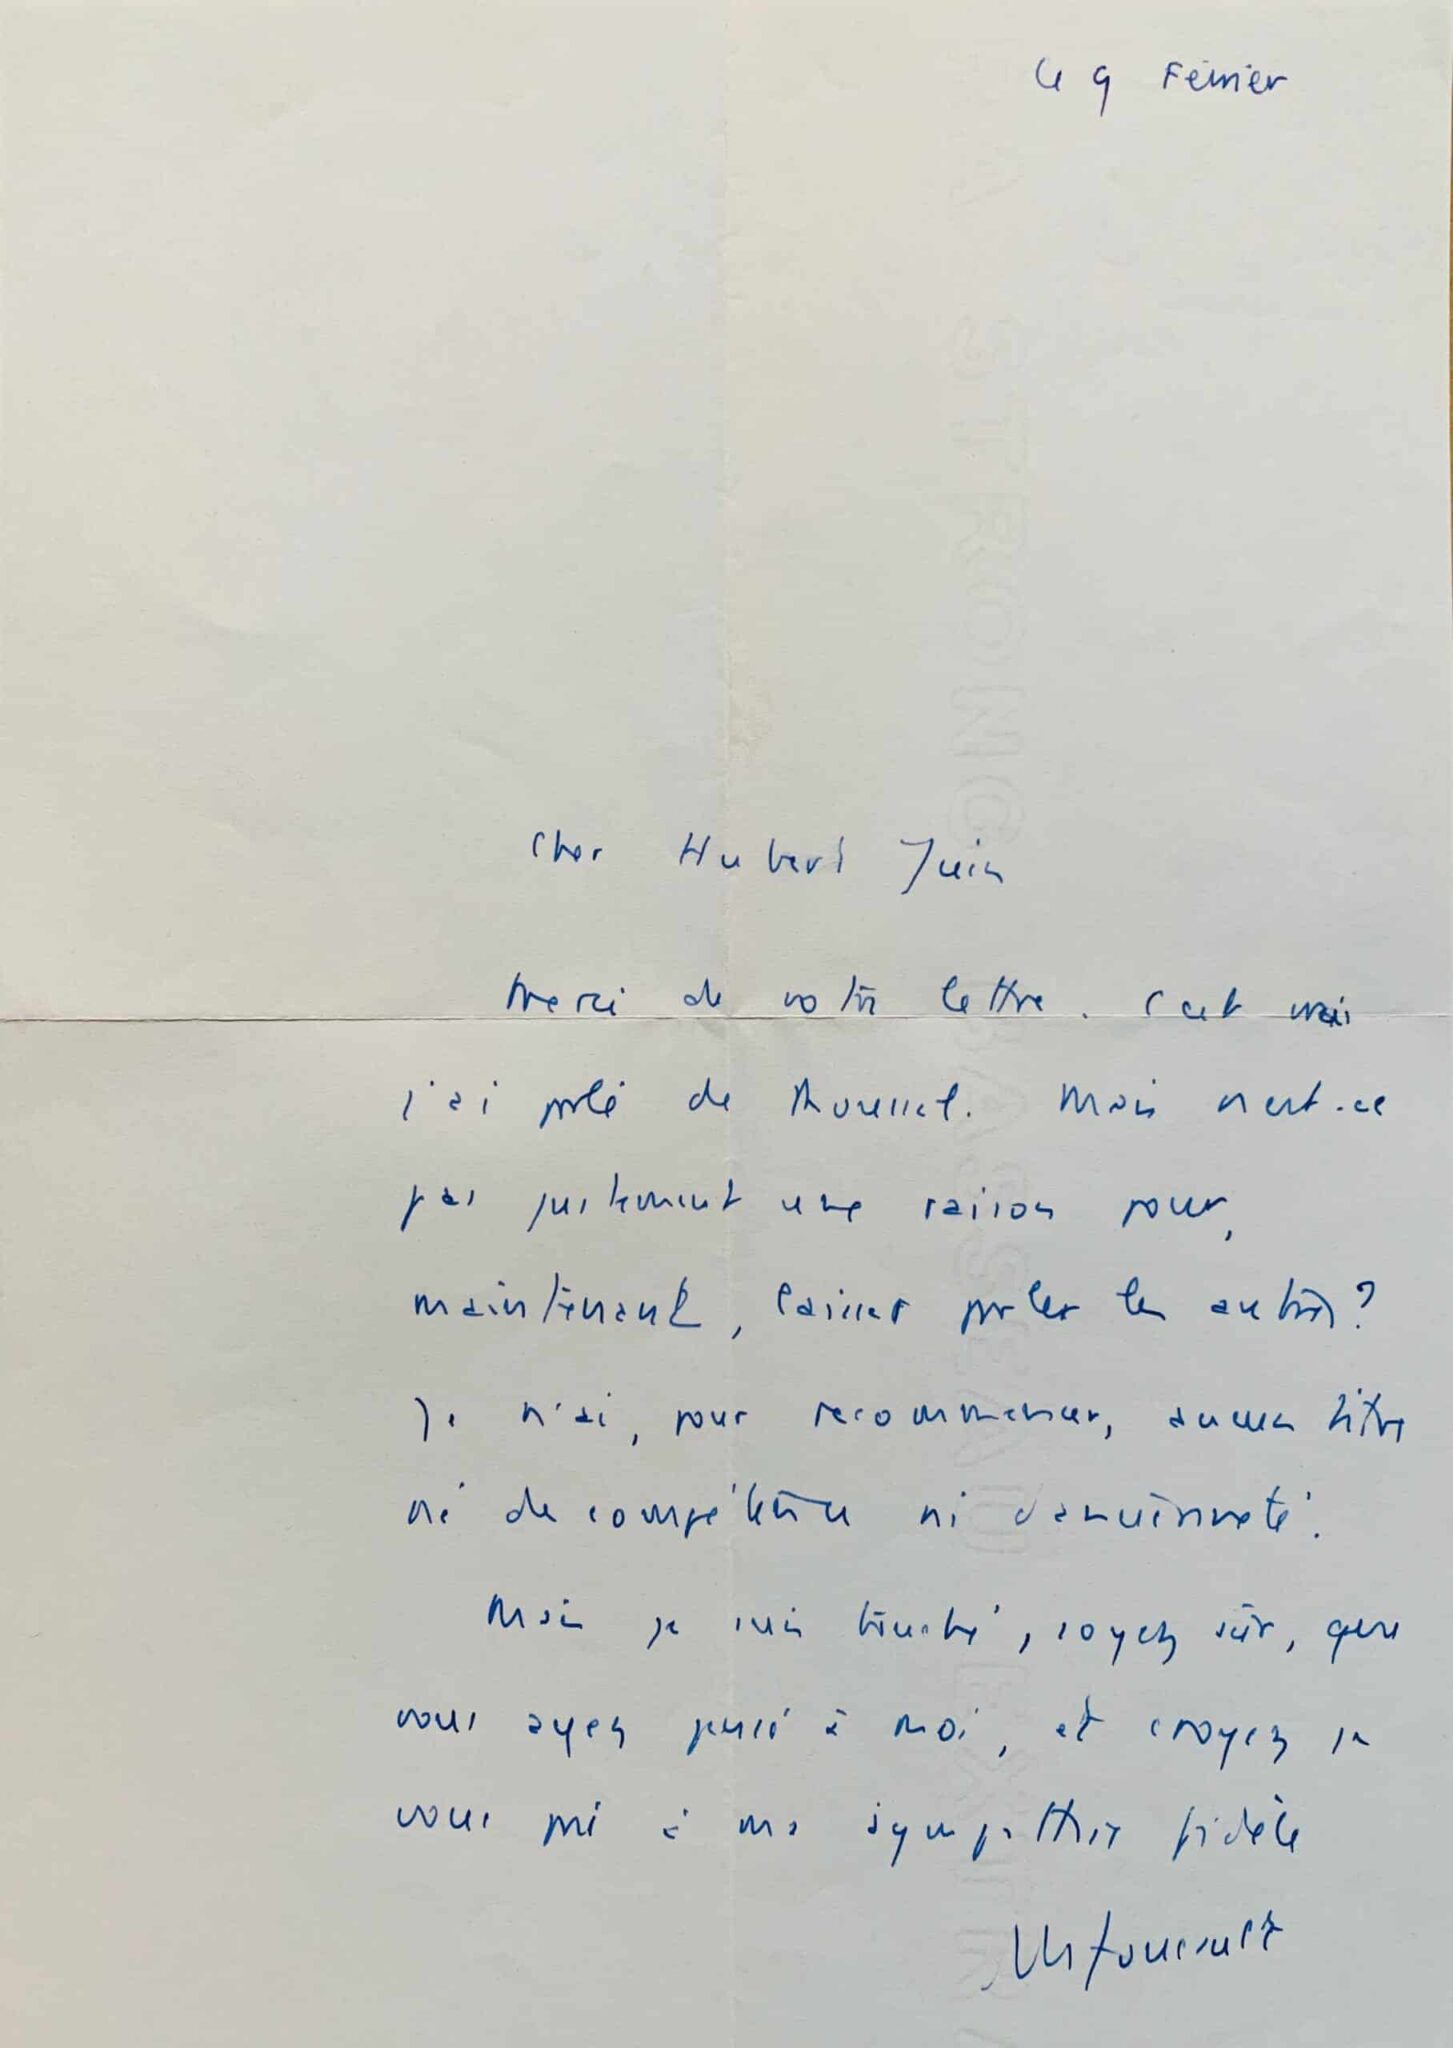 le 9 Février
Cher Hubert Juin
Merci de votre lettre. C'est vrai
j'ai parlé de Roussel. Mais n'est-ce
pas justement une raison pour,
maintenant, laisser parler les autres?
Je n'ai, pour recommencer, aucun titre
ni de compétence ni d'ancienneté.
Mais je suis touché, soyez sûr, que
vous ayez pensé à moi, et croyez je
vous prie à ma sympathie fidèle
M Foucault